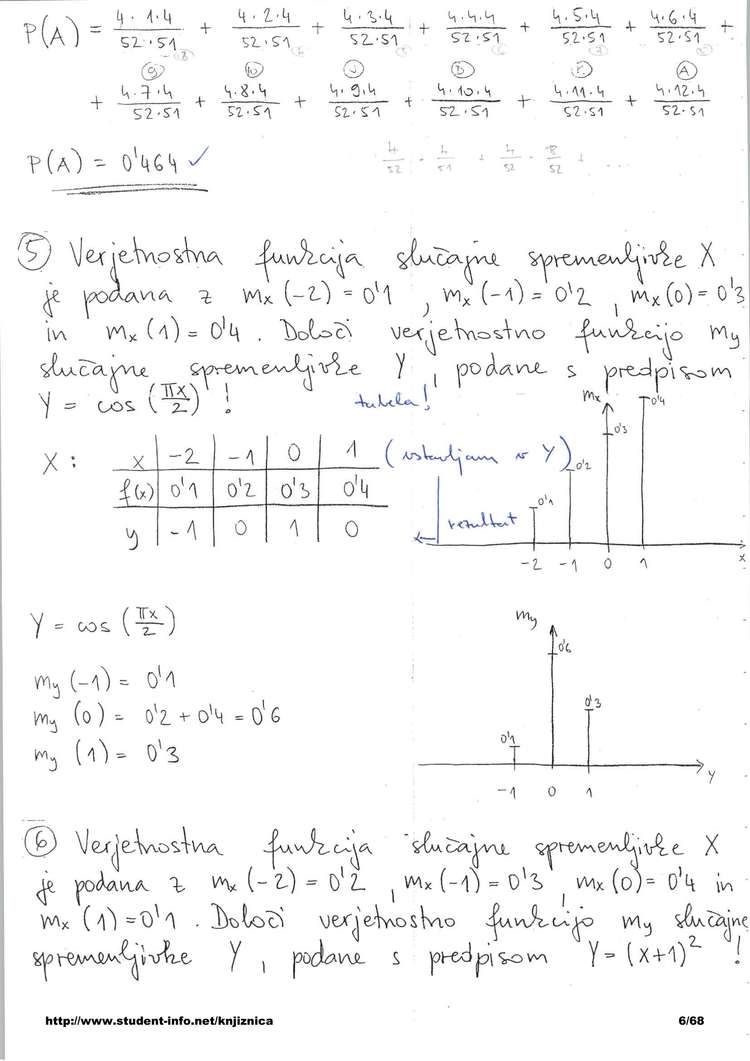 P(A) = 4·1·4/52·51 + 4·2·4/52·51 + 4·3·4/52·51 + 4·4·4/52·51 + 4·5·4/52·51 + 4·6·4/52·51 +
+ 4·7·4/52·51 + 4·8·4/52·51 + 4·9·4/52·51 + 4·10·4/52·51 + 4·11·4/52·51 + 4·12·4/52·51
P(A) = 0'464 ✓
4/52 · 4/51 + 4/52 · 8/52 + ...
⑤ Verjetnostna funkcija slučajne spremenljivke X
je podana z mx(-2) = 0'1, mx(-1) = 0'2, mx(0) = 0'3
in mx(1) = 0'4. Določi verjetnostno funkcijo my
slučajne spremenljivke Y, podane s predpisom
Y = cos (πx/2)!
tabela!
X: x | -2 | -1 | 0 | 1 (vstavljam v Y)
f(x) | 0'1 | 0'2 | 0'3 | 0'4
y | -1 | 0 | 1 | 0
rezultat
mx
0'4
0'3
0'2
0'1
-2 -1 0 1 x
Y = cos (πx/2)
my (-1) = 0'1
my (0) = 0'2 + 0'4 = 0'6
my (1) = 0'3
my
0'6
0'3
0'1
-1 0 1 y
⑥ Verjetnostna funkcija slučajne spremenljivke X
je podana z mx(-2) = 0'2, mx(-1) = 0'3, mx(0) = 0'4 in
mx(1) = 0'1. Določi verjetnostno funkcijo my slučajne
spremenljivke Y, podane s predpisom Y = (x+1)²!
http://www.student-info.net/knjiznica 6/68